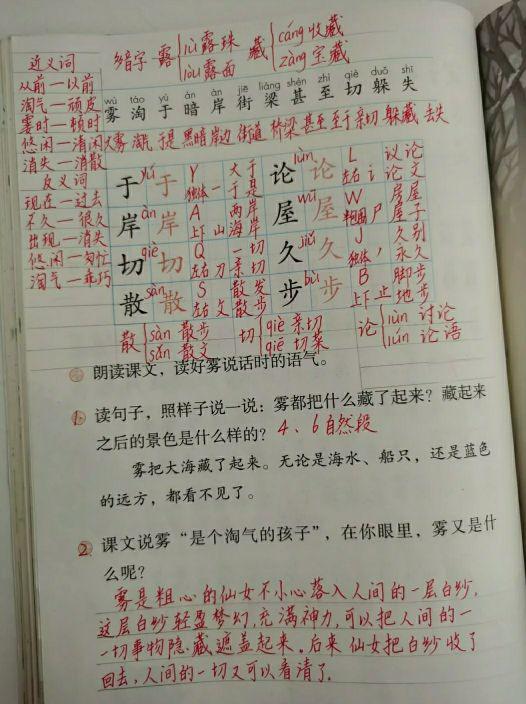 近义词
从前—以前
淘气—顽皮
霎时—顿时
悠闲—清闲
消失—消散
反义词
现在—过去
不久—很久
出现—消失
悠闲—匆忙
淘气—乖巧
多音字 露 lù露珠 lòu露面 藏 cáng收藏 zàng宝藏
wù táo yú àn àn jiē liáng shèn zhì qiè duǒ shī
雾 淘 于 暗 岸 街 梁 甚 至 切 躲 失
大雾 淘气 于是 黑暗 岸边 街道 桥梁 甚至 至于 亲切 躲藏 去失
于 yú 于 Y 大于 论 lùn 论 L 议论
独体 一 于是 左右 讠 论文
岸 àn 岸 A 两岸 屋 wū 屋 W 房屋
上下 山 海岸 尸 屋子
切 qiè 切 Q 一切 久 jiǔ 久 J 久别
左右 刀 亲切 独体 丿 永久
散 sàn 散 S 散发 步 bù 步 B 脚步
左右 攵 散步 上下 止 地步
散 sàn 散步 sǎn 散文 切 qiè 亲切 qiē 切菜 论 lùn 讨论 lún 论语
朗读课文，读好雾说话时的语气。
1 读句子，照样子说一说：雾都把什么藏了起来？藏起来
之后的景色是什么样的？ 4、6自然段
雾把大海藏了起来。无论是海水、船只，还是蓝色
的远方，都看不见了。
2 课文说雾“是个淘气的孩子”，在你眼里，雾又是什
么呢？
雾是粗心的仙女不小心落入人间的一层白纱，
这层白纱轻盈梦幻，充满神力，可以把人间的一
一切事物隐藏遮盖起来。后来仙女把白纱收了
回去，人间的一切又可以看清了。